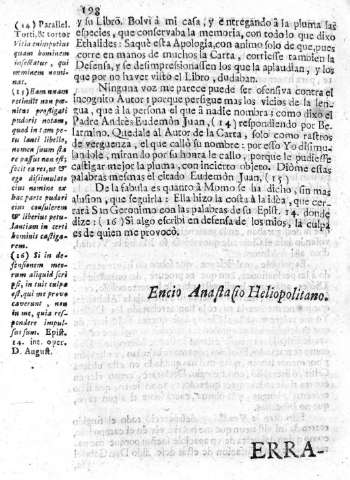 198
(14) Parallel.
Torti, & tortor
Vitia enim potius
quam hominem
insectatur, qui
neminem nomi-
nat.
(15) Eam unam
tu
pudoris notam,
quod in tam pe-
tulanti libello,
nomen suum ista
re passus non est;
ego dissimulato
eius nomine ex
hac parte pudori
eius consulerem
& liberius petu-
lantiam in certi
hominis castiga-
rem.
(16) Si in de-
fensionem meo-
rum aliquid scri
psi, in tuis culpa
est, qui me provo
caverunt, non
in me, quia res-
pondere impul-
sus sum. Epist.
14. int. oper.
D. August.
y su Libro. Bolvi à mi casa, y entregando à la pluma las
especies, que conservaba la memoria, con todo lo que dixo
Ethalides: Saquè esta Apologia, con animo solo de que, pues
corre en manos de muchos la Carta, corriesse tambien la
Defensa, y se desimpressionassen los que la aplaudian, y los
que por no haver visto el Libro, dudaban.
Ninguna voz me parece puede ser ofensiva contra el
incognito Autor: porque persigue mas los vicios de la len-
gua, que à la persona el que à nadie nombra: como dixo el
Padre Andrès Eudemòn Juan, (14) respondiendo por Be-
larmino. Quedale al Autor de la Carta, solo como rastros
de verguenza, el que callò su nombre: por esso Yo dissimu-
landole, mirando por su honra le callo, porque le pudiesse
castigar mejor la pluma, con incierto objeto. Diòme essas
palabras mesmas el citado Eudemòn Juan, (15)
De la fabula es quanto à Momo se ha dicho, sin mas
alusion, que seguirla: Ella hizo la costa à la idea, que cer-
rarà San Geronimo con las palabras de su Epist. 14. donde
dize: (16) Si algo escribì en defensa de los mios, la culpa
es de quien me provocò.
Encio Anastasio Heliopolitano.
ERRA-